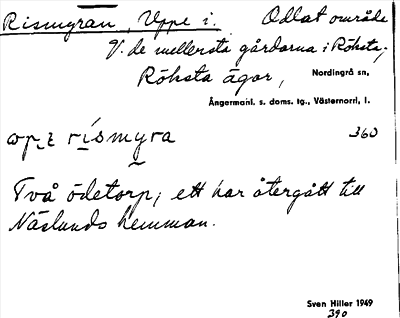 Rismyran, Uppe i. Odlat område
V. de mellersta gårdarna i Röksta,
Röksta ägor, Nordingrå sn,
Ångermanl. s. doms. tg., Västernorrl, l.
rismyra 360
Två ödetorp; ett har återgått till
Näslunds hemman.
Sven Hiller 1949
390